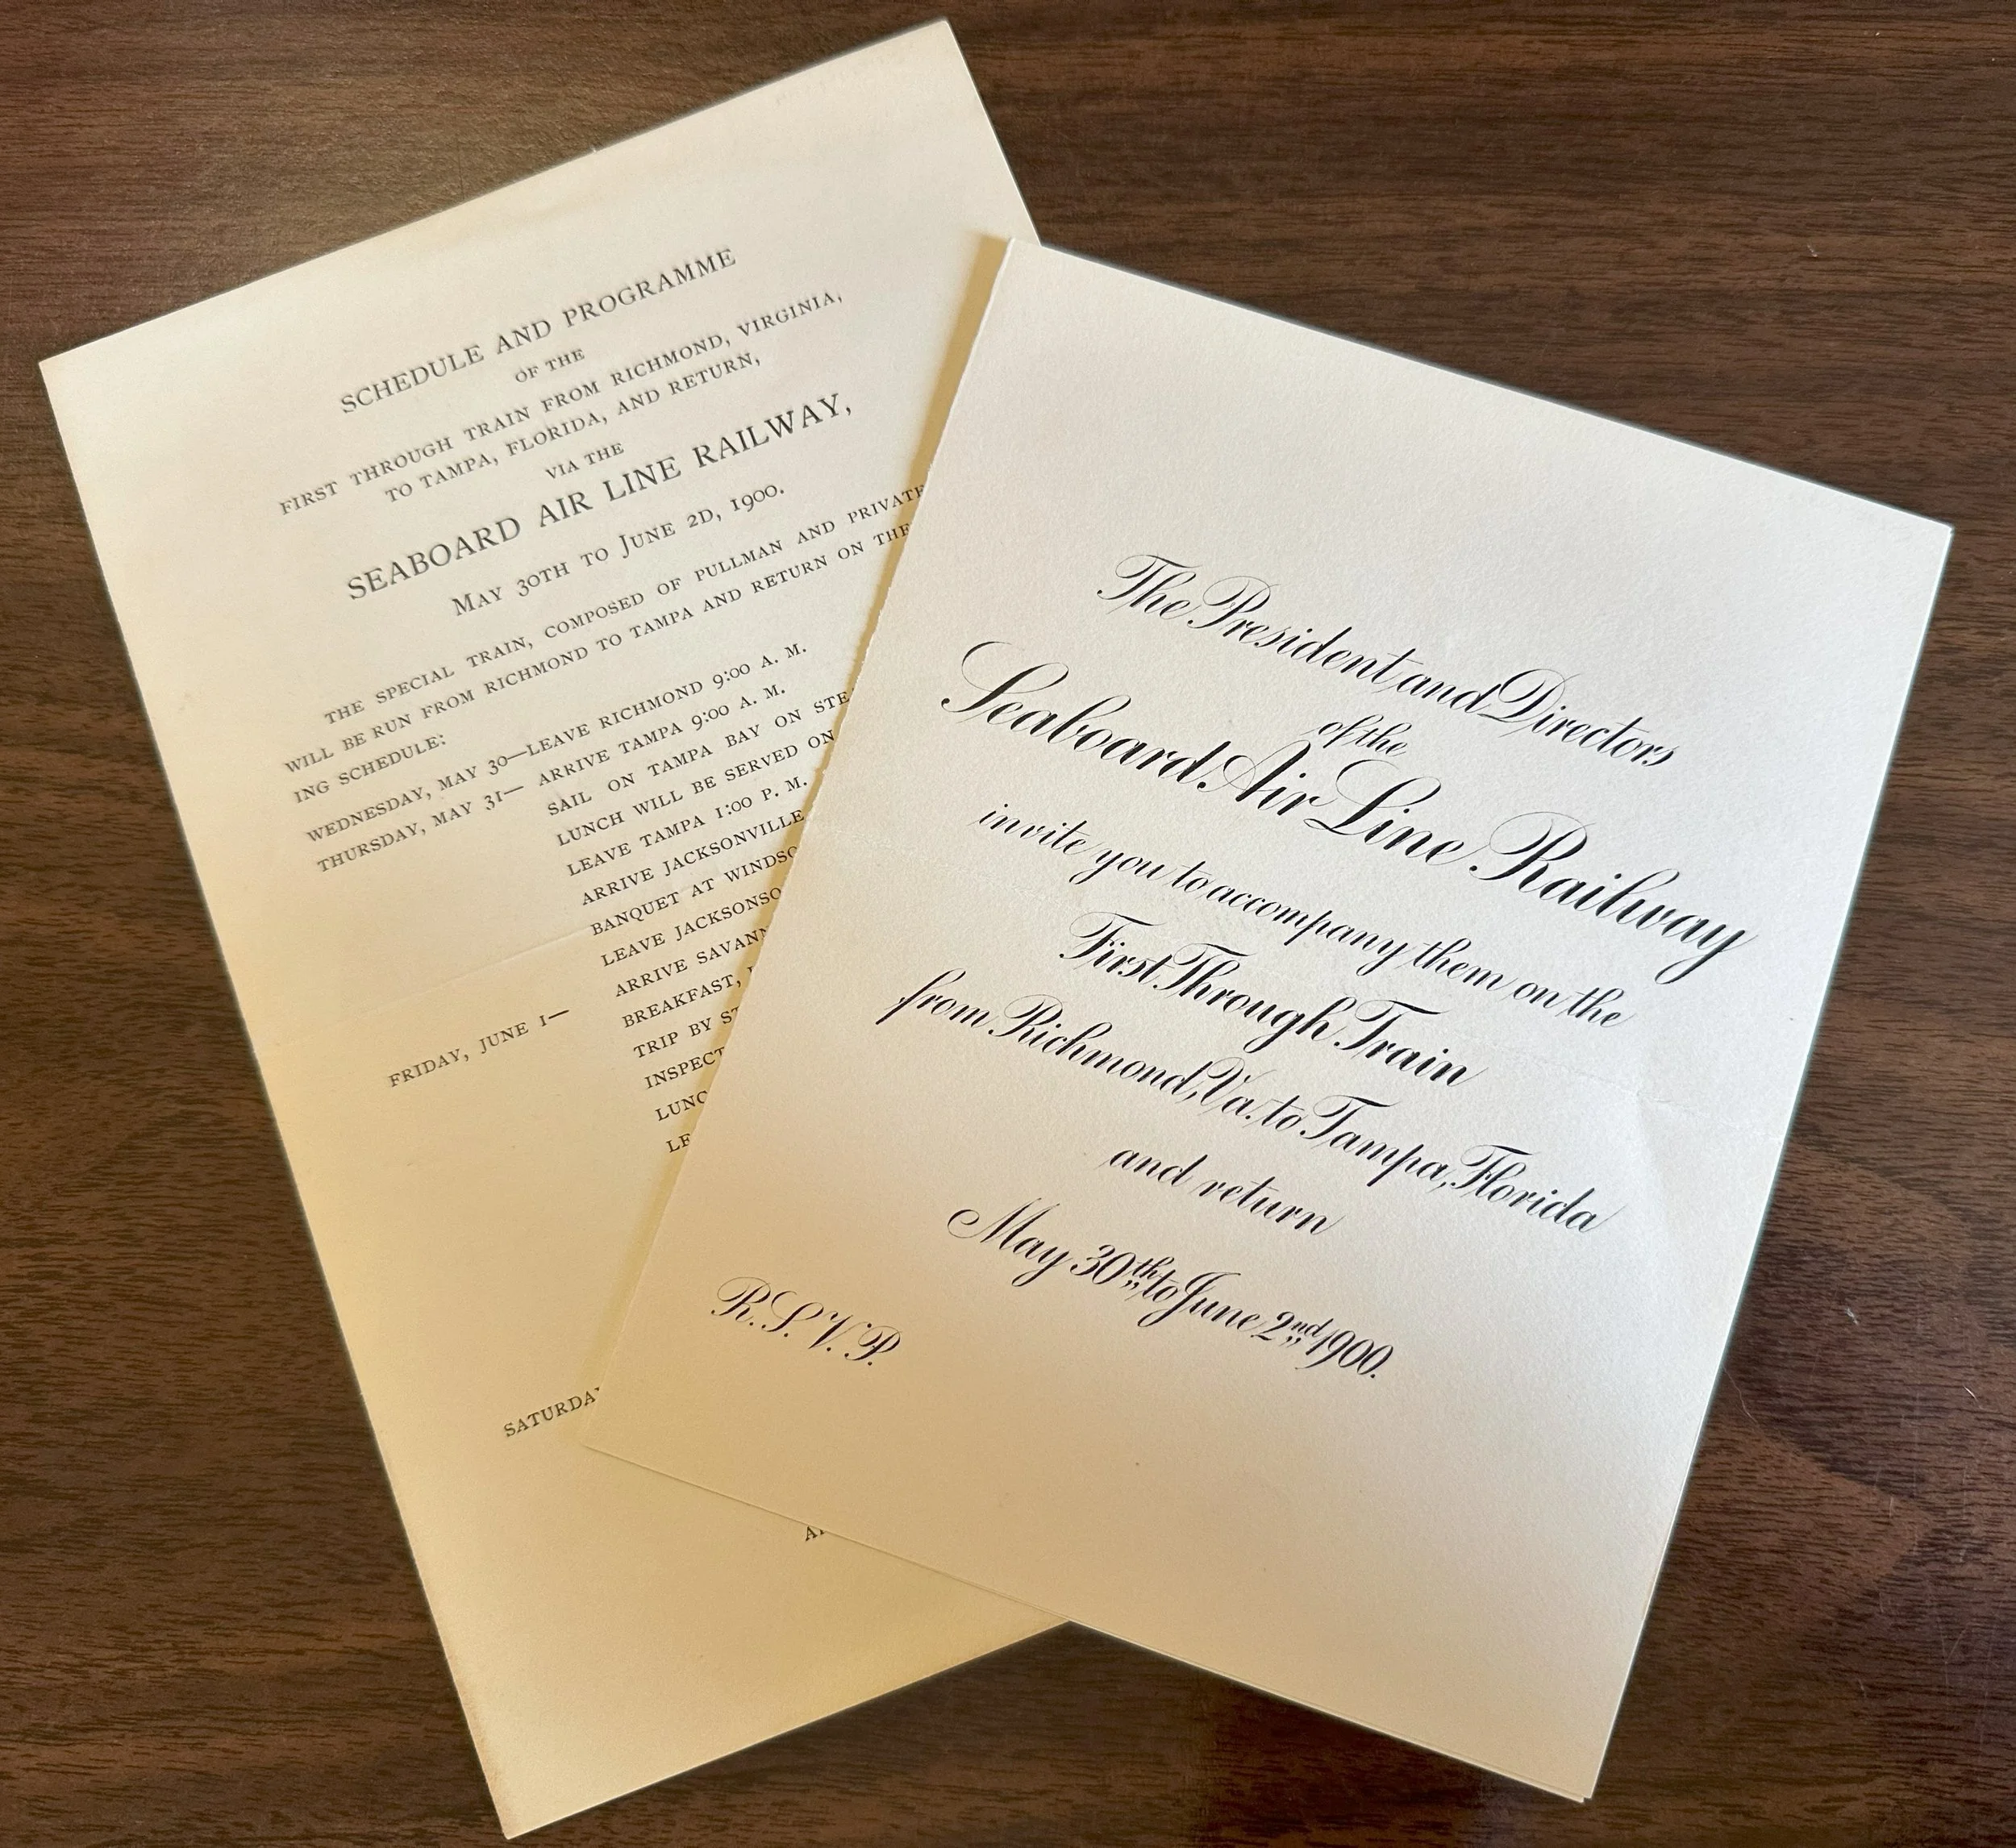 SCHEDULE AND PROGRAMME
OF THE
FIRST THROUGH TRAIN FROM RICHMOND, VIRGINIA,
TO TAMPA, FLORIDA, AND RETURN,
VIA THE
SEABOARD AIR LINE RAILWAY,
MAY 30TH TO JUNE 2D, 1900.
THE SPECIAL TRAIN, COMPOSED OF PULLMAN AND PRIVATE
WILL BE RUN FROM RICHMOND TO TAMPA AND RETURN ON THE
ING SCHEDULE:
WEDNESDAY, MAY 30—LEAVE RICHMOND 9:00 A. M.
THURSDAY, MAY 31— ARRIVE TAMPA 9:00 A. M.
SAIL ON TAMPA BAY ON STE
LUNCH WILL BE SERVED ON
LEAVE TAMPA 1:00 P. M.
ARRIVE JACKSONVILLE
BANQUET AT WINDSO
LEAVE JACKSONSO
ARRIVE SAVANN
FRIDAY, JUNE 1— BREAKFAST,
TRIP BY ST
INSPECT
LUNC
LE
SATURDAY
The President and Directors
of the
Seaboard Air Line Railway
invite you to accompany them on the
First Through Train
from Richmond, Va. to Tampa, Florida
and return
May 30th to June 2nd 1900.
R.S.V.P.